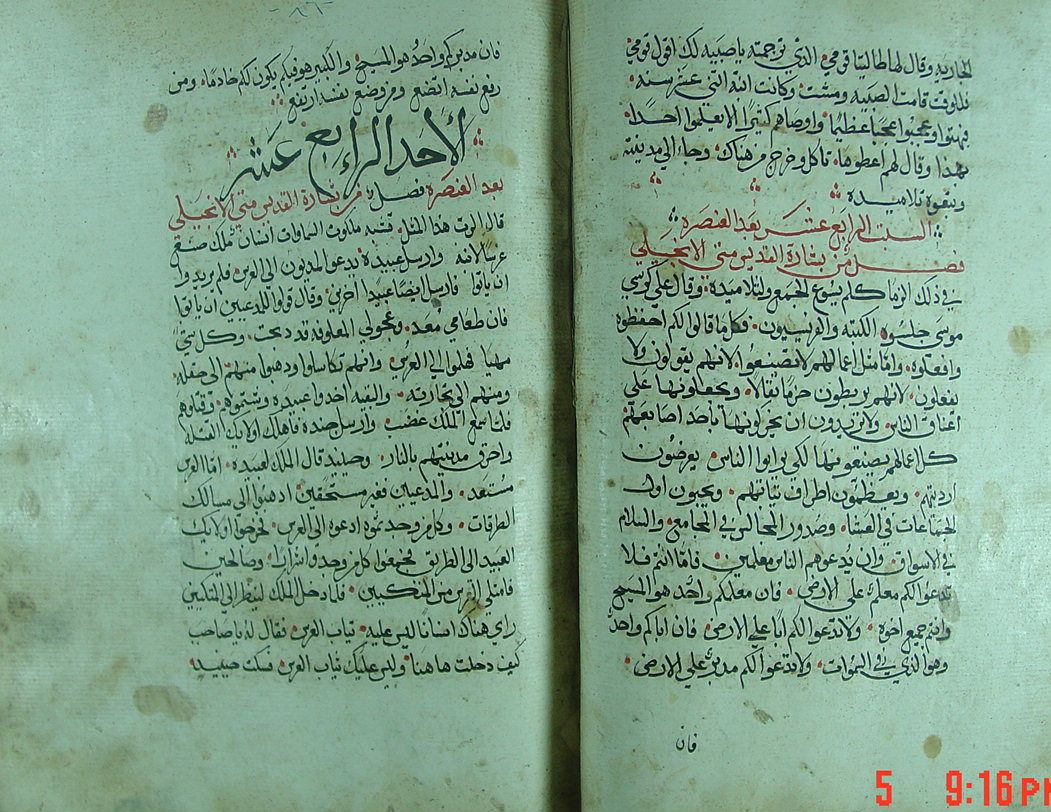 الجاريه وقال لها طاليثا قومي الذي ترجمته ياصبيه لك اقول قومي
فللوقت قامت الصبيه ومشت وكانت ابنة اثنتي عشر سنه
فبهتوا وعجبوا عجبًا عظيما واوصاهم كثيرًا الا يعلموا احدًا
بهذا وقال لهم اعطوها تاكل وخرج من هناك وجاء الي مدينته
وتبعوه تلاميده
السبت الرابع عشر بعد العنصره
فصل من بشارة القديس متي الانجيلي
في ذلك الزمان كلم يسوع الجمع ولتلاميذه وقال علي كرسي
موسي جلسوا الكتبه والفريسيون فكل ما قالوا لكم احفظوه
وافعلوه واما مثل اعمالهم لا تصنعوا لانهم يقولون ولا
يفعلون لانهم يربطون حزمًا ثقالا ويجعلونها علي
اعناق الناس ولا يريدون ان يحركونها باحد اصابعهم
كل اعمالهم يصنعونها لكي يراوا الناس يعرضون
ارديتهم ويعظمون اطراف ثيابهم ويحبون اول
الجماعات في العشا وصدور المجالس في المجامع والسلام
في الاسواق وان يدعوهم الناس معلمين فاما انتم فلا
تدعوا لكم معلم علي الارض فان معلمكم واحد هو المسيح
وانتم جميع اخوه ولا تدعوا لكم ابا علي الارض فان اباكم واحد
وهو الذي في السموات ولا تدعوا لكم مدبر علي الارض
فان
٨٦
فان مدبركم واحد هو المسيح والكبير هو فيكم يكون لكم خادما ومن
رفع نفسه اتضع ومن وضع نفسه ارتفع
الأحد الرابع عشر
بعد العنصره فصل من بشارة القديس متي الانجيلي
قال الرب هذا المثل تشبه ملكوت السماوات انسان ملك صنع
عرسًا لابنه وارسل عبيده يدعو المدعون الي العرس فلم يريدوا
ان ياتوا فارسل ايضا عبيدا اخري وقال قولوا للمدعيين ان ياتوا
فان طعامي معد وعجولي المعلوفه قد دبحت وكل شي
مهيا فهلموا الي العرس وانهم تكاسلوا ودهبوا منهم الي حقله
ومنهم الي تجارته والبقيه اخدوا عبيده وشتموهم وقتلوهم
فلما سمع الملك غضب وارسل جنده فاهلك اولايك القتله
واحرق مدينتهم بالنار وحينيد قال الملك لعبيده اما العرس
مستعد والمدعيين فغير مستحقين ادهبوا الي مسالك
الطرقات وكل من وجدتموه ادعوه الي العرس فخرجوا اولايك
العبيد الي الطريق فجمعوا كل من وجدوا اشرارا وصالحين
فامتلي العرس من المتكيين فلما دخل الملك لينظر الي المتكيين
راي هناك انسانا ليس عليه ثياب العرس فقال له ياصاحب
كيف دخلت هاهنا وليس عليك ثياب العرس فسكت حينيد
5 9:16 PM